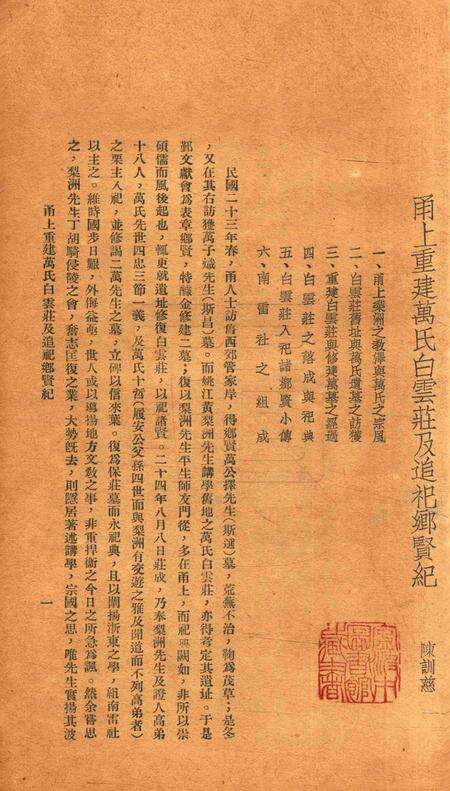 甬上重建萬氏白雲莊及追祀鄉賢紀
陳訓慈
一、甬上梨洲之教澤與萬氏之宗風
二、白雲莊舊址與萬氏遺墓之訪獲
三、重建白雲莊與修建萬墓之經過
四、白雲莊之落成與祀典
五、白雲莊入祀諸鄉賢小傳
六、南雷社之組成
民國二十三年春，甬人士訪舊西郊管家岸，得鄉賢萬公擇先生（斯選）墓，荒蕪不治，鞠為茂草；是冬
，又在其右訪獲萬子熾先生（斯昌）墓。而姚江黃梨洲先生講學舊地之萬氏白雲莊，亦得考定其遺址。于是
鄞文獻會為表章鄉賢，特醵金修建二墓；復以梨洲先生平生師友門從，多在甬上，而祀典闕如，非所以崇
碩儒而風後起也，輒東就遺址修復白雲莊，以祀諸賢。二十四年八月八日莊成，乃奉梨洲先生及證人高弟
十八人，萬氏先世四忠三節一義，及萬氏十哲（履安公父孫四世而與梨洲有交遊之雅及聞道而不列高弟者）
之栗主入祀，並修謁二萬先生之墓，立碑以信來葉。復為保莊墓而永祀典，且以闡揚浙東之學，組南雷社
以主之。維時國步日艱，外侮益亟，世人或以邁揚地方文教之事，非重捍衛之今日之所急為諷。然余嘗思
之，梨洲先生丁胡騎侵陵之會，奮志匡復之業，大勢旣去，則隱居著述講學，宗國之思，唯先生實揚其波
甬上重建萬氏白雲莊及追祀鄉賢紀
一